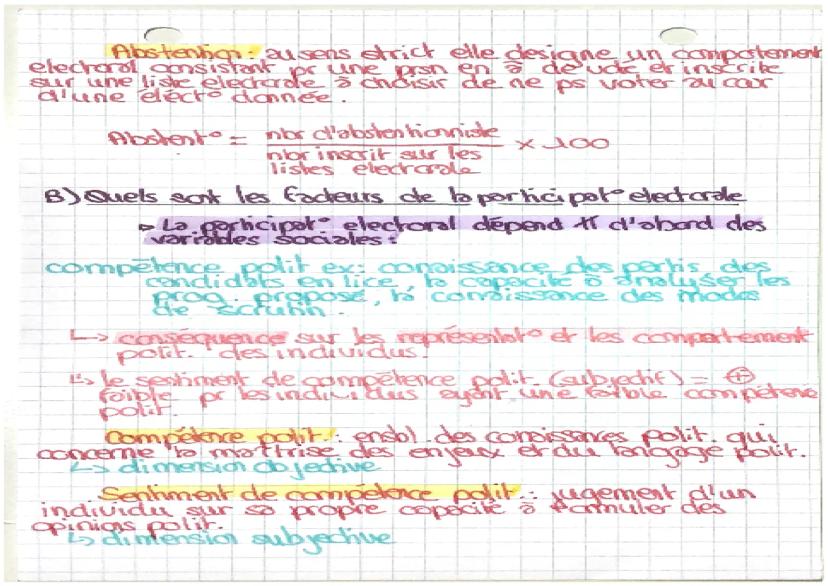 Abstention : au sens strict elle designe un comportement
electoral consistant pr une prsn en â de voter et inscrite
sur une liste electorale à choisir de ne ps voter au cour
d'une élect° donnée.
Abstent° = nbr d'abstentionniste / nbr inscrit sur les listes electorale × 100
B) Quels sont les facteurs de la participat° electorale
▷ La participat° electoral dépend tt d'abord des
variables sociales :
compétence polit ex: conaissance des partis des
candidats en lice, la capacité à analyser les
prog. proposé, la connaissance des modes
de scrutin.
↳ conséquence sur les représentat° et les comportement
polit. des individus.
↳ le sentiment de compétence polit. (subjectif) = ⊕
faible pr les individus ayant une faible compétence
polit.
Compétence polit. : ensbl. des conaissances polit. qui
concerne la maîtrise des enjeux et du langage polit.
↳ dimension objective
Sentiment de compétence polit. : jugement d'un
individu sur sa propre capacité à formuler des
opinions polit.
↳ dimension subjective